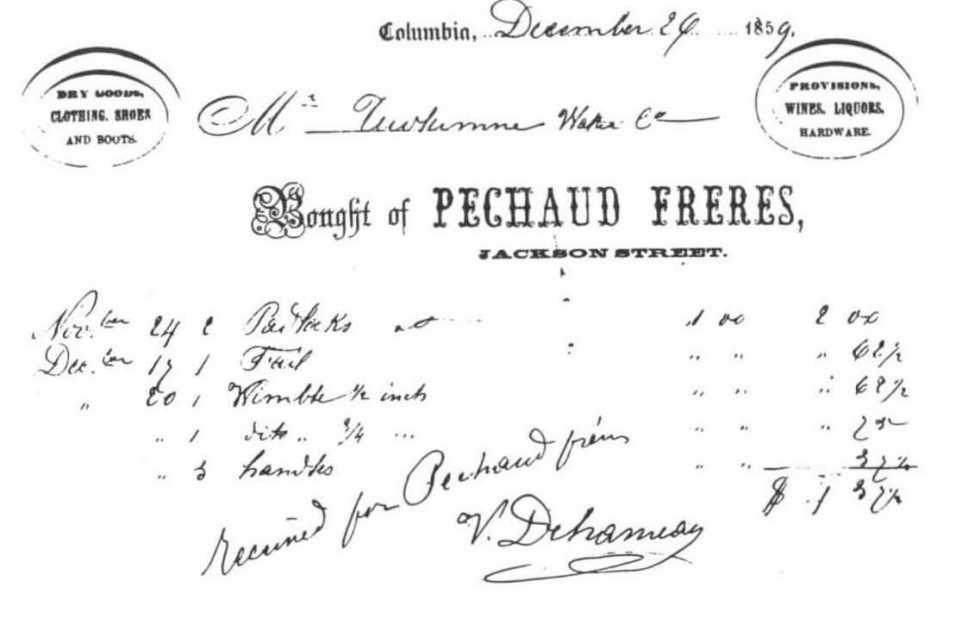 Columbia, December 26 1859.
DRY GOODS,
CLOTHING, SHOES
AND BOOTS.
PROVISIONS,
WINES, LIQUORS,
HARDWARE.
Mr Tuolumne Water Co
Bought of PECHAUD FRERES,
JACKSON STREET.
Nov.ber 24 2 Padlocks at 1 00 2 00
Dec.ber 17 1 " " " 62½
" 20 1 Wimble ½ inch " " " 62½
" 1 dito " ¾ " " "
" 3 handles " " 37½
$
received for Pechaud frères
V.